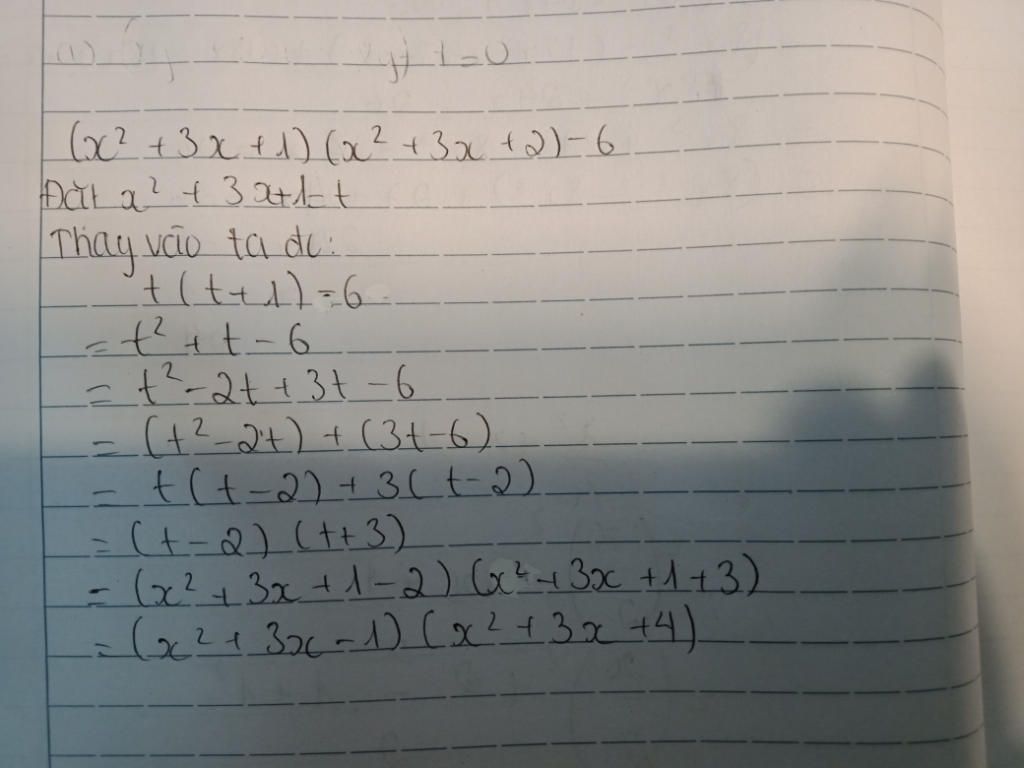 (x² + 3x + 1) (x² + 3x + 2) - 6
Đặt x² + 3x+1= t
Thay vào ta đc:
t ( t + 1 ) - 6
= t² + t - 6
= t² - 2t + 3t - 6
= (t² - 2t) + (3t - 6)
= t ( t - 2 ) + 3 ( t - 2 )
= ( t - 2 ) ( t + 3 )
= (x² + 3x + 1 - 2) (x² + 3x + 1 + 3)
= (x² + 3x - 1) (x² + 3x + 4)